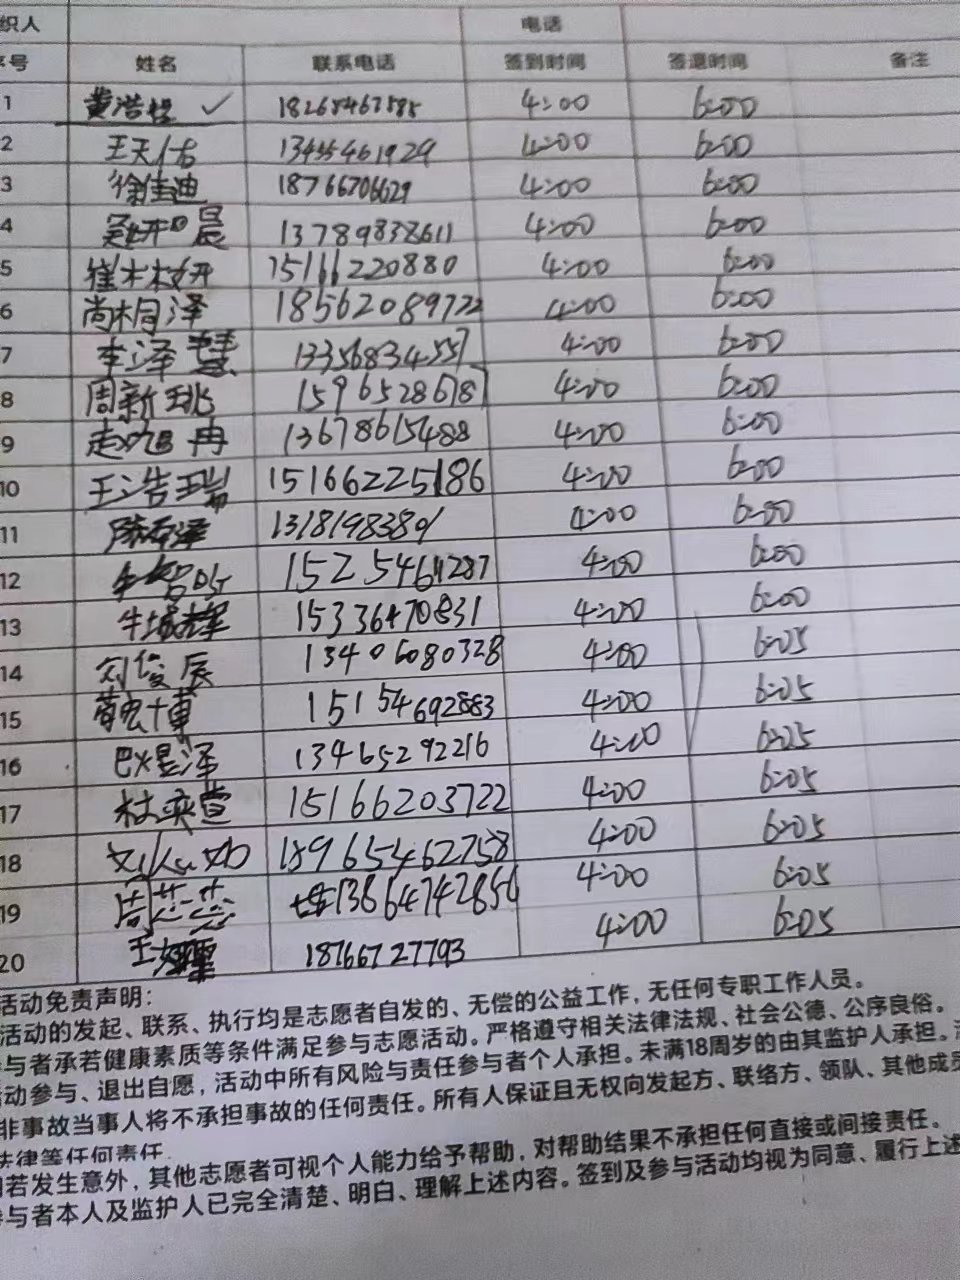 织人 电话
序号 姓名 联系电话 签到时间 签退时间 备注
1 黄浩煜 ✓ 4:00 6:00
2 王天佑 4:00 6:00
3 徐佳迪 18766706629 4:00 6:00
4 晨 13789838611 4:00 6:00
5 崔林妍 15166220880 4:00 6:00
6 尚桐泽 18562089722 4:00 6:00
7 李泽慧 13356834557 4:00 6:00
8 周新珧 15965286787 4:00 6:00
9 赵旭冉 13678615488 4:00 6:00
10 王浩瑞 15166225186 4:00 6:00
11 13181983801 4:00 6:00
12 15254611287 4:00 6:00
13 牛城耀 15336470831 4:00 6:00
14 刘俊辰 13406080328 4:00 6:25
15 15154692883 4:00 6:25
16 巴煜泽 13465292216 4:00 6:25
17 杜奕萱 15166203722 4:00 6:05
18 18965462758 4:00 6:05
19 周芯蕊 13864742856 4:00 6:05
20 王 18766727793 4:00 6:05
活动免责声明：
活动的发起、联系、执行均是志愿者自发的、无偿的公益工作，无任何专职工作人员。
与者承若健康素质等条件满足参与志愿活动。严格遵守相关法律法规、社会公德、公序良俗。
动参与、退出自愿，活动中所有风险与责任参与者个人承担。未满18周岁的由其监护人承担。
非事故当事人将不承担事故的任何责任。所有人保证且无权向发起方、联络方、领队、其他成员
法律等任何责任.
若发生意外，其他志愿者可视个人能力给予帮助，对帮助结果不承担任何直接或间接责任。
与者本人及监护人已完全清楚、明白、理解上述内容。签到及参与活动均视为同意、履行上述